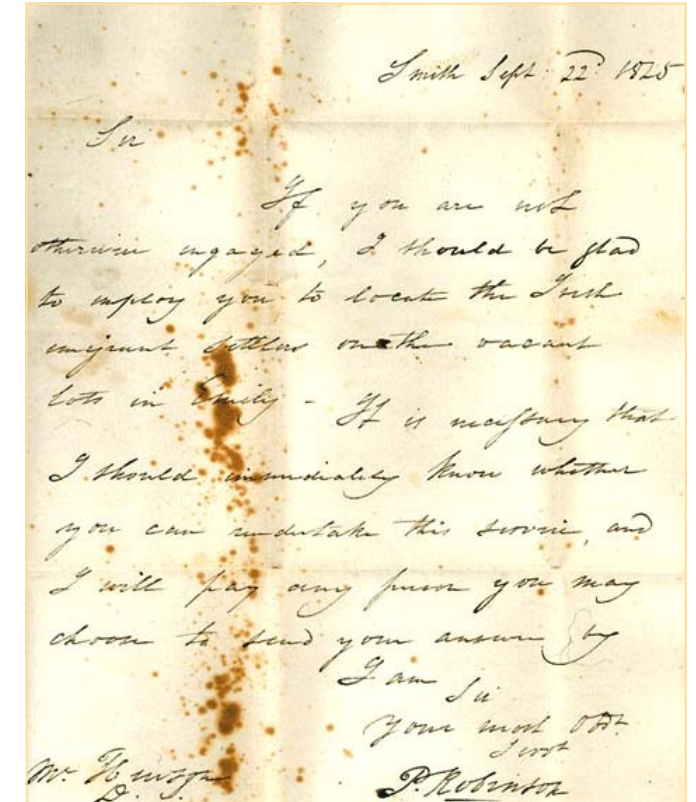 Smith Sept. 22d. 1825
Sir
If you are not
otherwise engaged, I should be glad
to employ you to locate the Irish
emigrant settlers on the vacant
lots in Emily - It is necessary that
I should immediately know whether
you can undertake this service, and
I will pay any person you may
choose to send your answer by
I am
Sir
Your most Obdt.
Servt
P. Robinson
Mr.